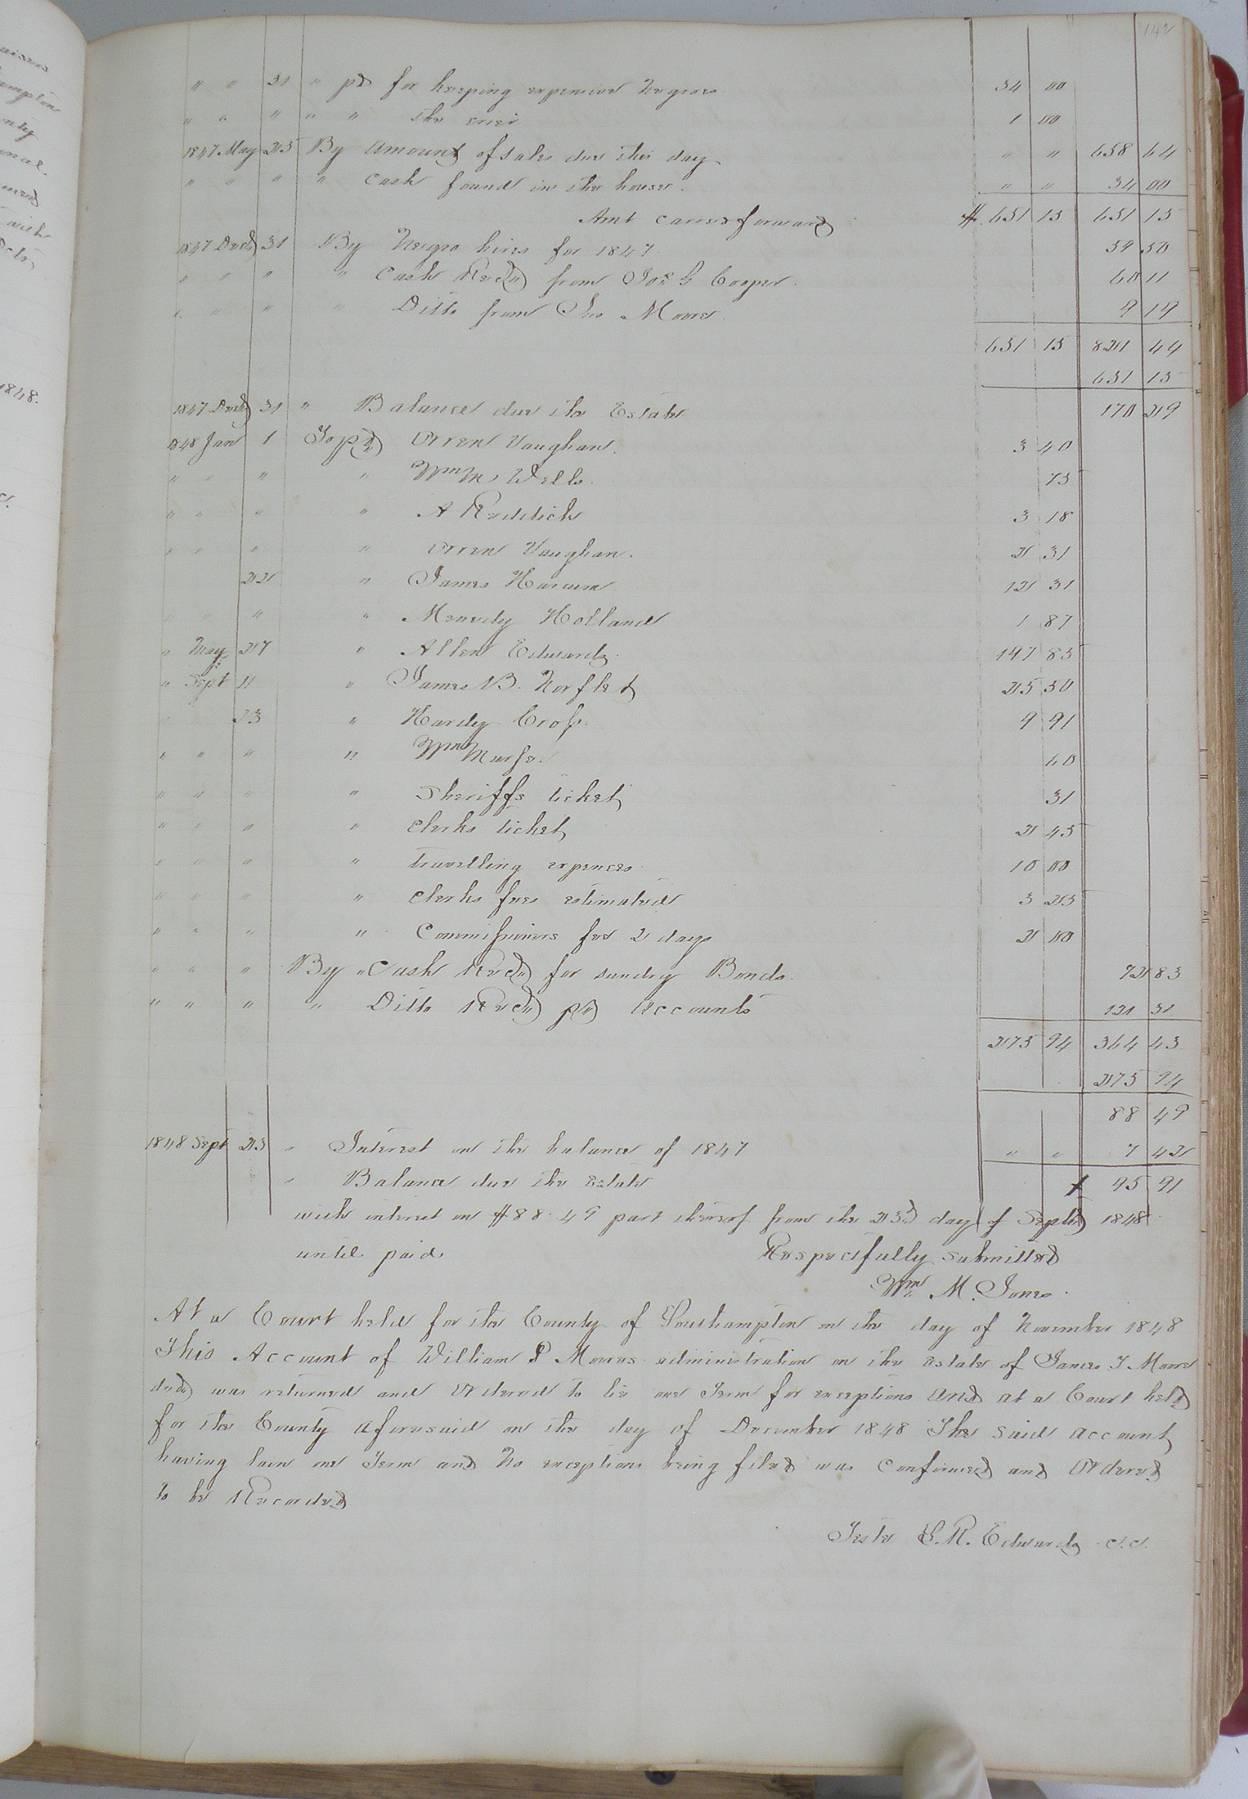 142
" " 31 " pd for keeping expensive Negroes 34 00
" " " " " the crier 1 00
1847 May 25 By Amount of sales due this day " " 658 64
" " " " Cash found in the house. " " 34 00
Amt carried forward $ 651 15 651 15
1847 Decr 31 By Negro hires for 1847 59 50
" " " " Cash Recd from Jos G Cooper 60 11
" " " " Ditto from Jno Moore 9 19
651 15 821 44
651 15
1847 Decr 31 " Balance due the Estate 170 29
1848 Jan 1 To pd Orren Vaughan. 3 40
" " " " Wm M Wells. 75
" " " " A Riddick 3 18
" " " " Orren Vaughan. 2 31
22 " James Harcum 12 31
" " " " Holland 1 87
" May 27 " Allen Edwards. 147 85
" Sept 11 " James B. Norfleet 25 50
23 " Hardy Cross. 9 91
" " " " Wm Murfee. 60
" " " " Sheriffs ticket 31
" " " " Clerks ticket 2 45
" " " " travelling expences 10 00
" " " " Clerks fees estimated 3 25
" " " " Commissioners fee 2 days 2 00
" " " By " Cash Recd for sundry Bonds. 72 83
" " " " Ditto Recd pr Accounts 121 31
275 94 364 43
275 94
88 49
1848 Sept 23 " Interest on the balance of 1847 " " 7 42
" Balance due the Estate $ 95 91
with interest on $88.49 part thereof from the 23d day of Septr 1848
until paid. Respectfully submitted
Wm M. Jones.
At a Court held for the County of Southampton on the day of November 1848
This Account of William P Moores administration on the Estate of James T Moore
decd was returned and Ordered to lie one Term for exceptions And at a Court held
for the County aforesaid on the day of December 1848 The said Account
having lain one Term and No exceptions being filed was Confirmed and Ordered
to be Recorded
Teste L. R. Edwards c.c.